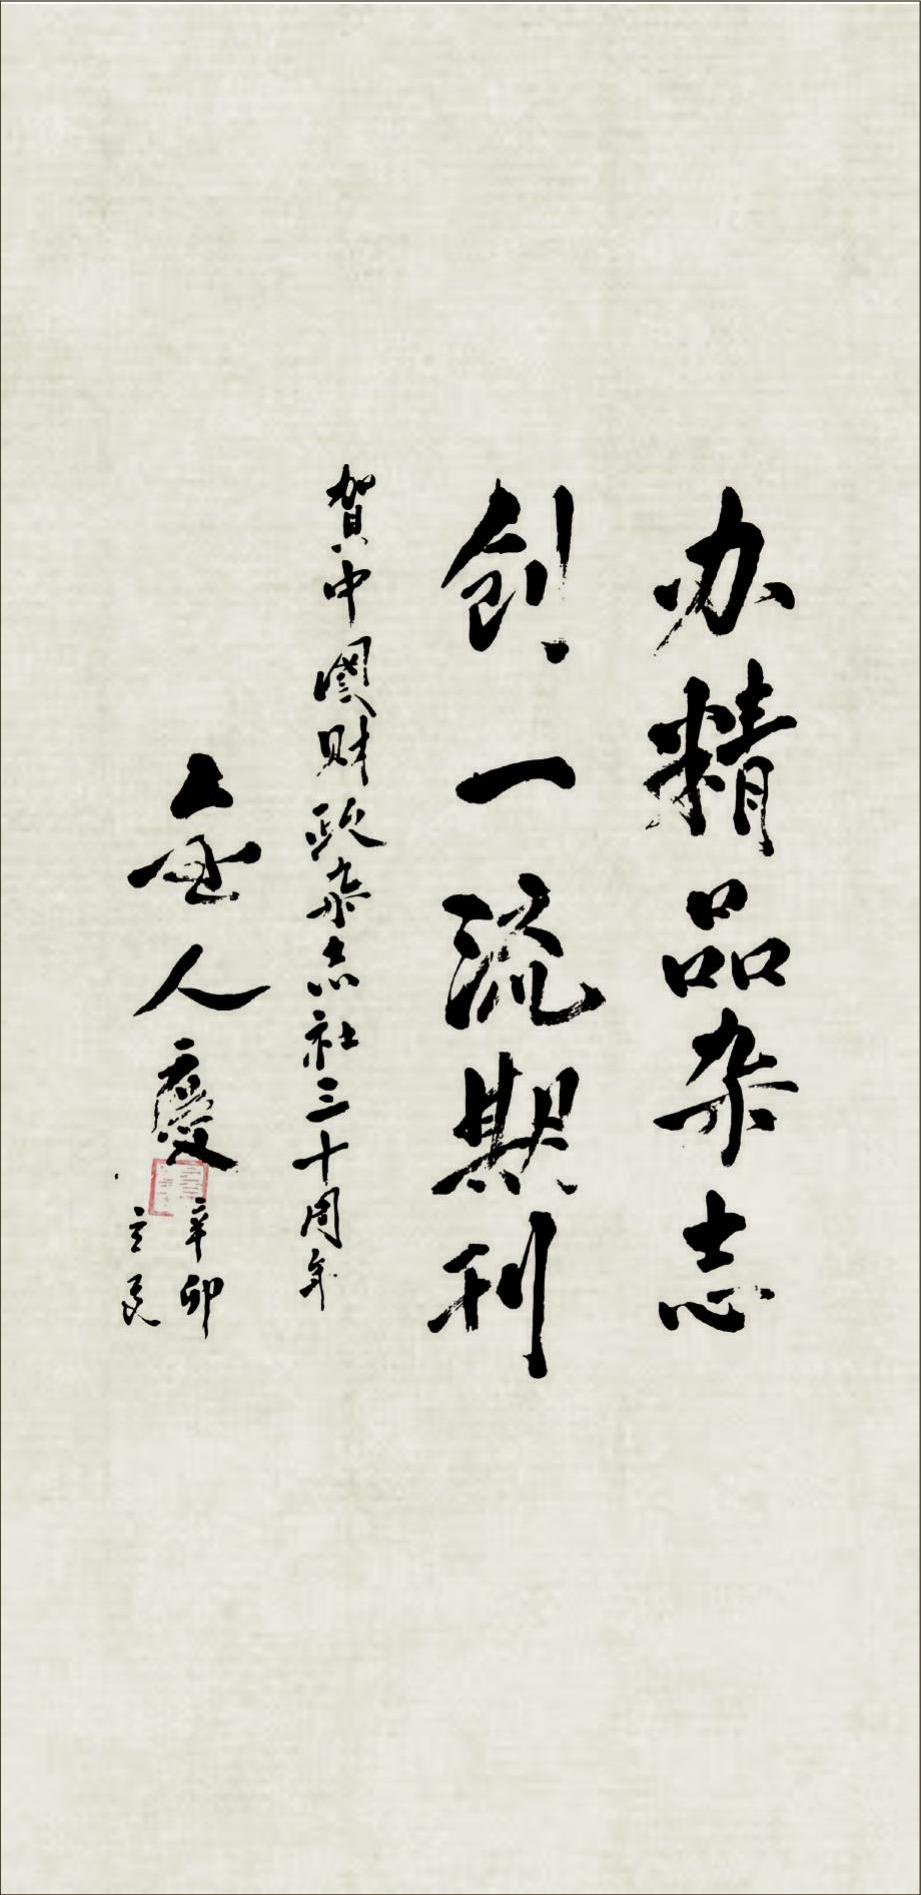 办精品杂志
创一流期刊
賀中國财政杂志社三十周年
金人慶
辛卯
立夏